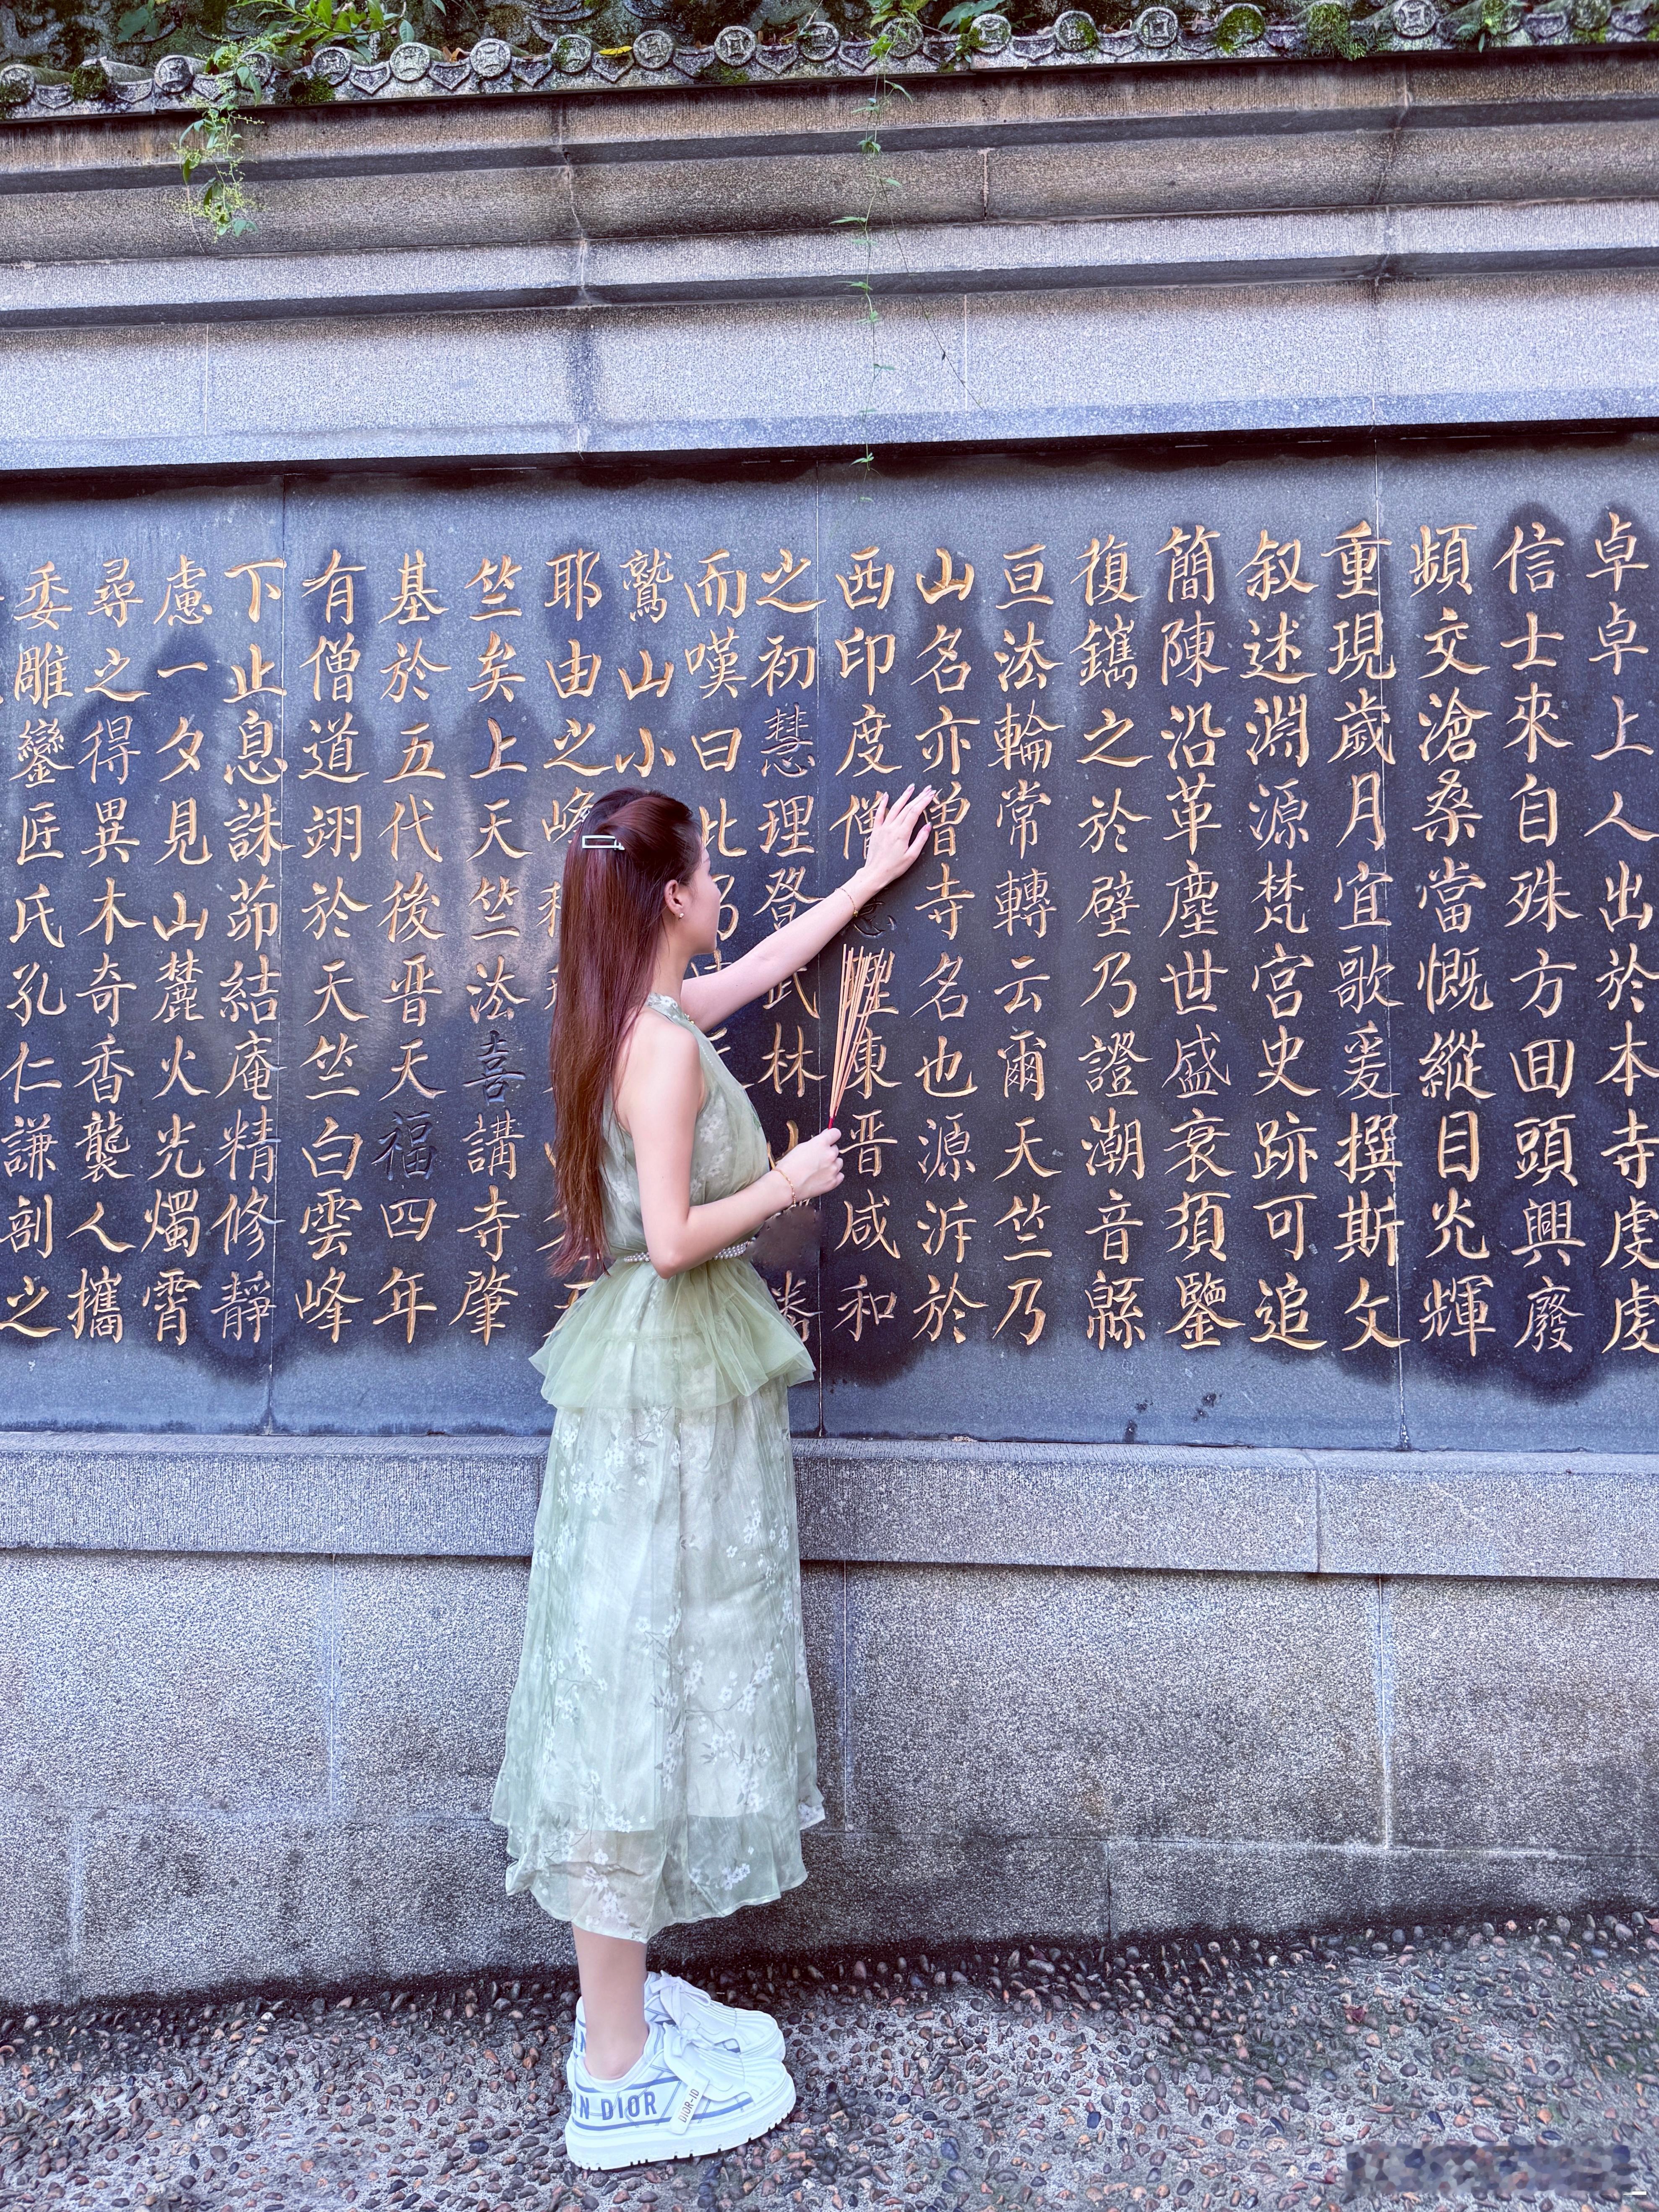 卓卓上人出於本寺虔虔
信士來自殊方回頭興廢
頻交滄桑當慨縱目光輝
重現歲月宜歌爰撰斯文
叙述淵源梵宮史跡可追
簡陳沿革塵世盛衰須鑒
復鐫之於壁乃證潮音緜
亘法輪常轉云爾天竺乃
山名亦曾寺名也源泝於
西印度僧東晋咸和
之初慧理登武林
而嘆曰此乃
鷲山小
耶由之峰
竺矣上天竺法喜講寺肇
基於五代後晋天福四年
有僧道翊於天竺白雲峰
下止息誅茆結庵精修靜
慮一夕見山麓火光燭霄
尋之得異木奇香襲人攜
委雕鑾匠氏孔仁謙剖之
DIOR
DIOR-ID